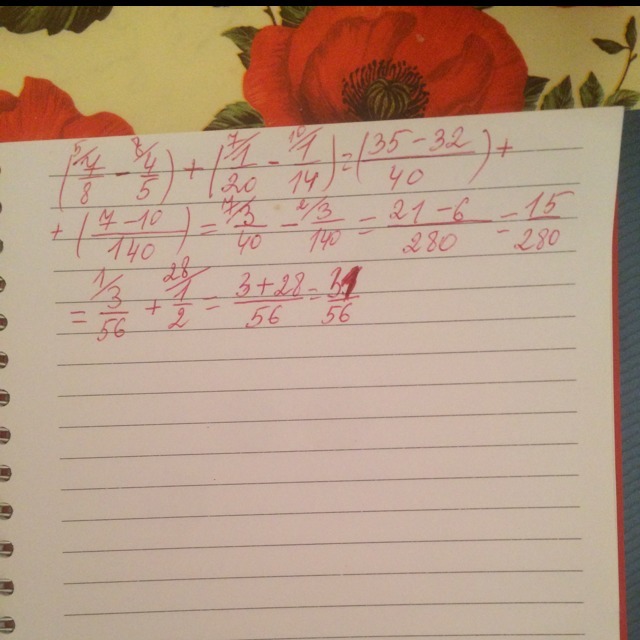 (⁵⁄7/8 - ⁸⁄4/5) + (⁷⁄1/20 - ¹⁰⁄1/14) = (35-32/40) +
+ (7-10/140) = ⁷⁄3/40 - ²⁄3/140 = 21-6/280 = 15/280
= ¹⁄3/56 + ²⁸⁄1/2 = 3+28/56 = 31/56